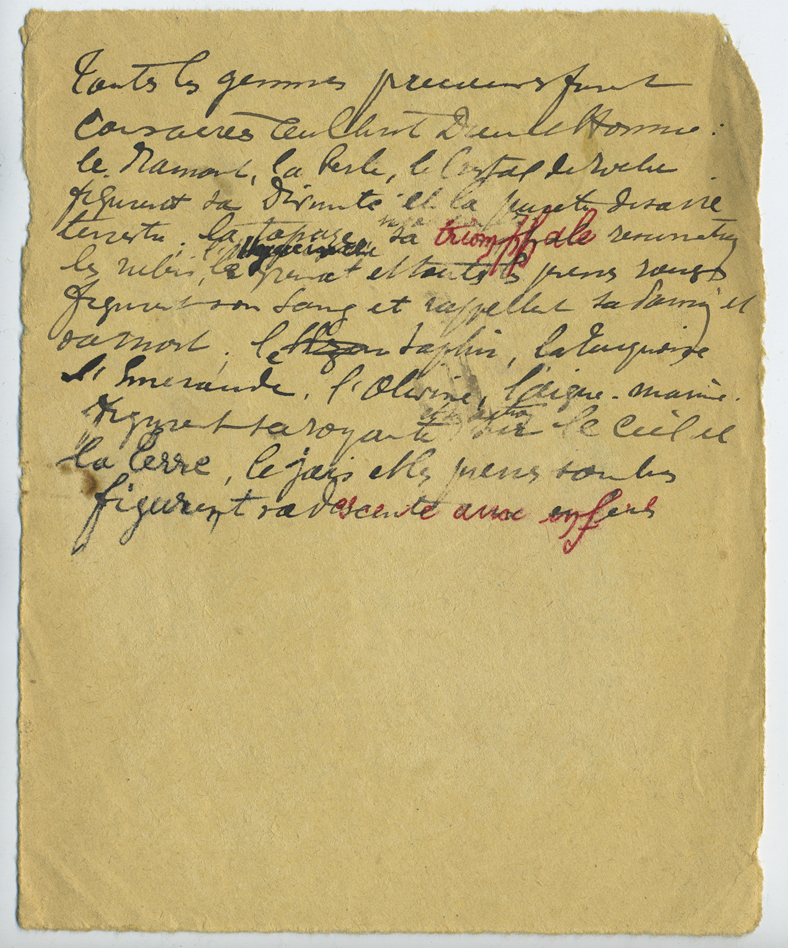 Toutes les gemmes precieuses furent
Consacrées au Christ Dieu et Homme :
le Diamant, la Perle, le Cristal de Roche
figurent sa Divinité et la pureté de sa vie
terrestre ; la topaze sa triomphale resurrection
les rubis, le grenat et toutes les pierres rouges
figurent son Sang et rappellent sa Passion et
sa mort ; le Saphir, la Turquoise
l'Emeraude, l'Olivine, l'aigue-marine.
figurent sa royauté sur le Ciel et
la Terre, le jais et les pierres sombres
figurent sa descente aux enfers